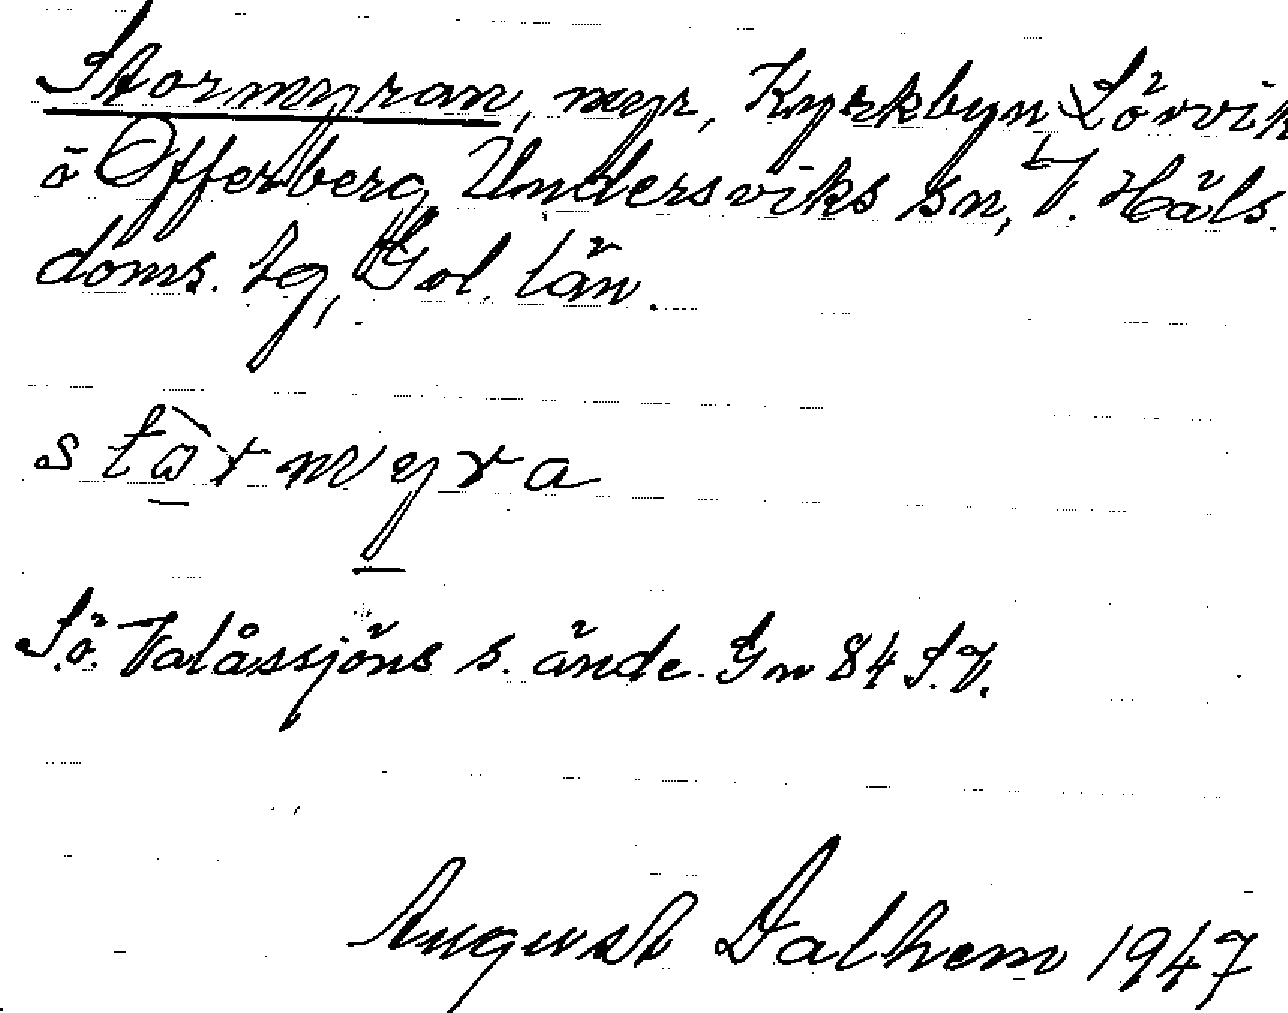 Stormyran, myr, Kyrkbyn, Sörvik
o Offerberg Undersviks sn, V. Häls.
doms. lg, Gvl. län.
stårmyra
S.ö. Valåssjöns s. ände. Gn 84 S.V.
August Dalhem 1947